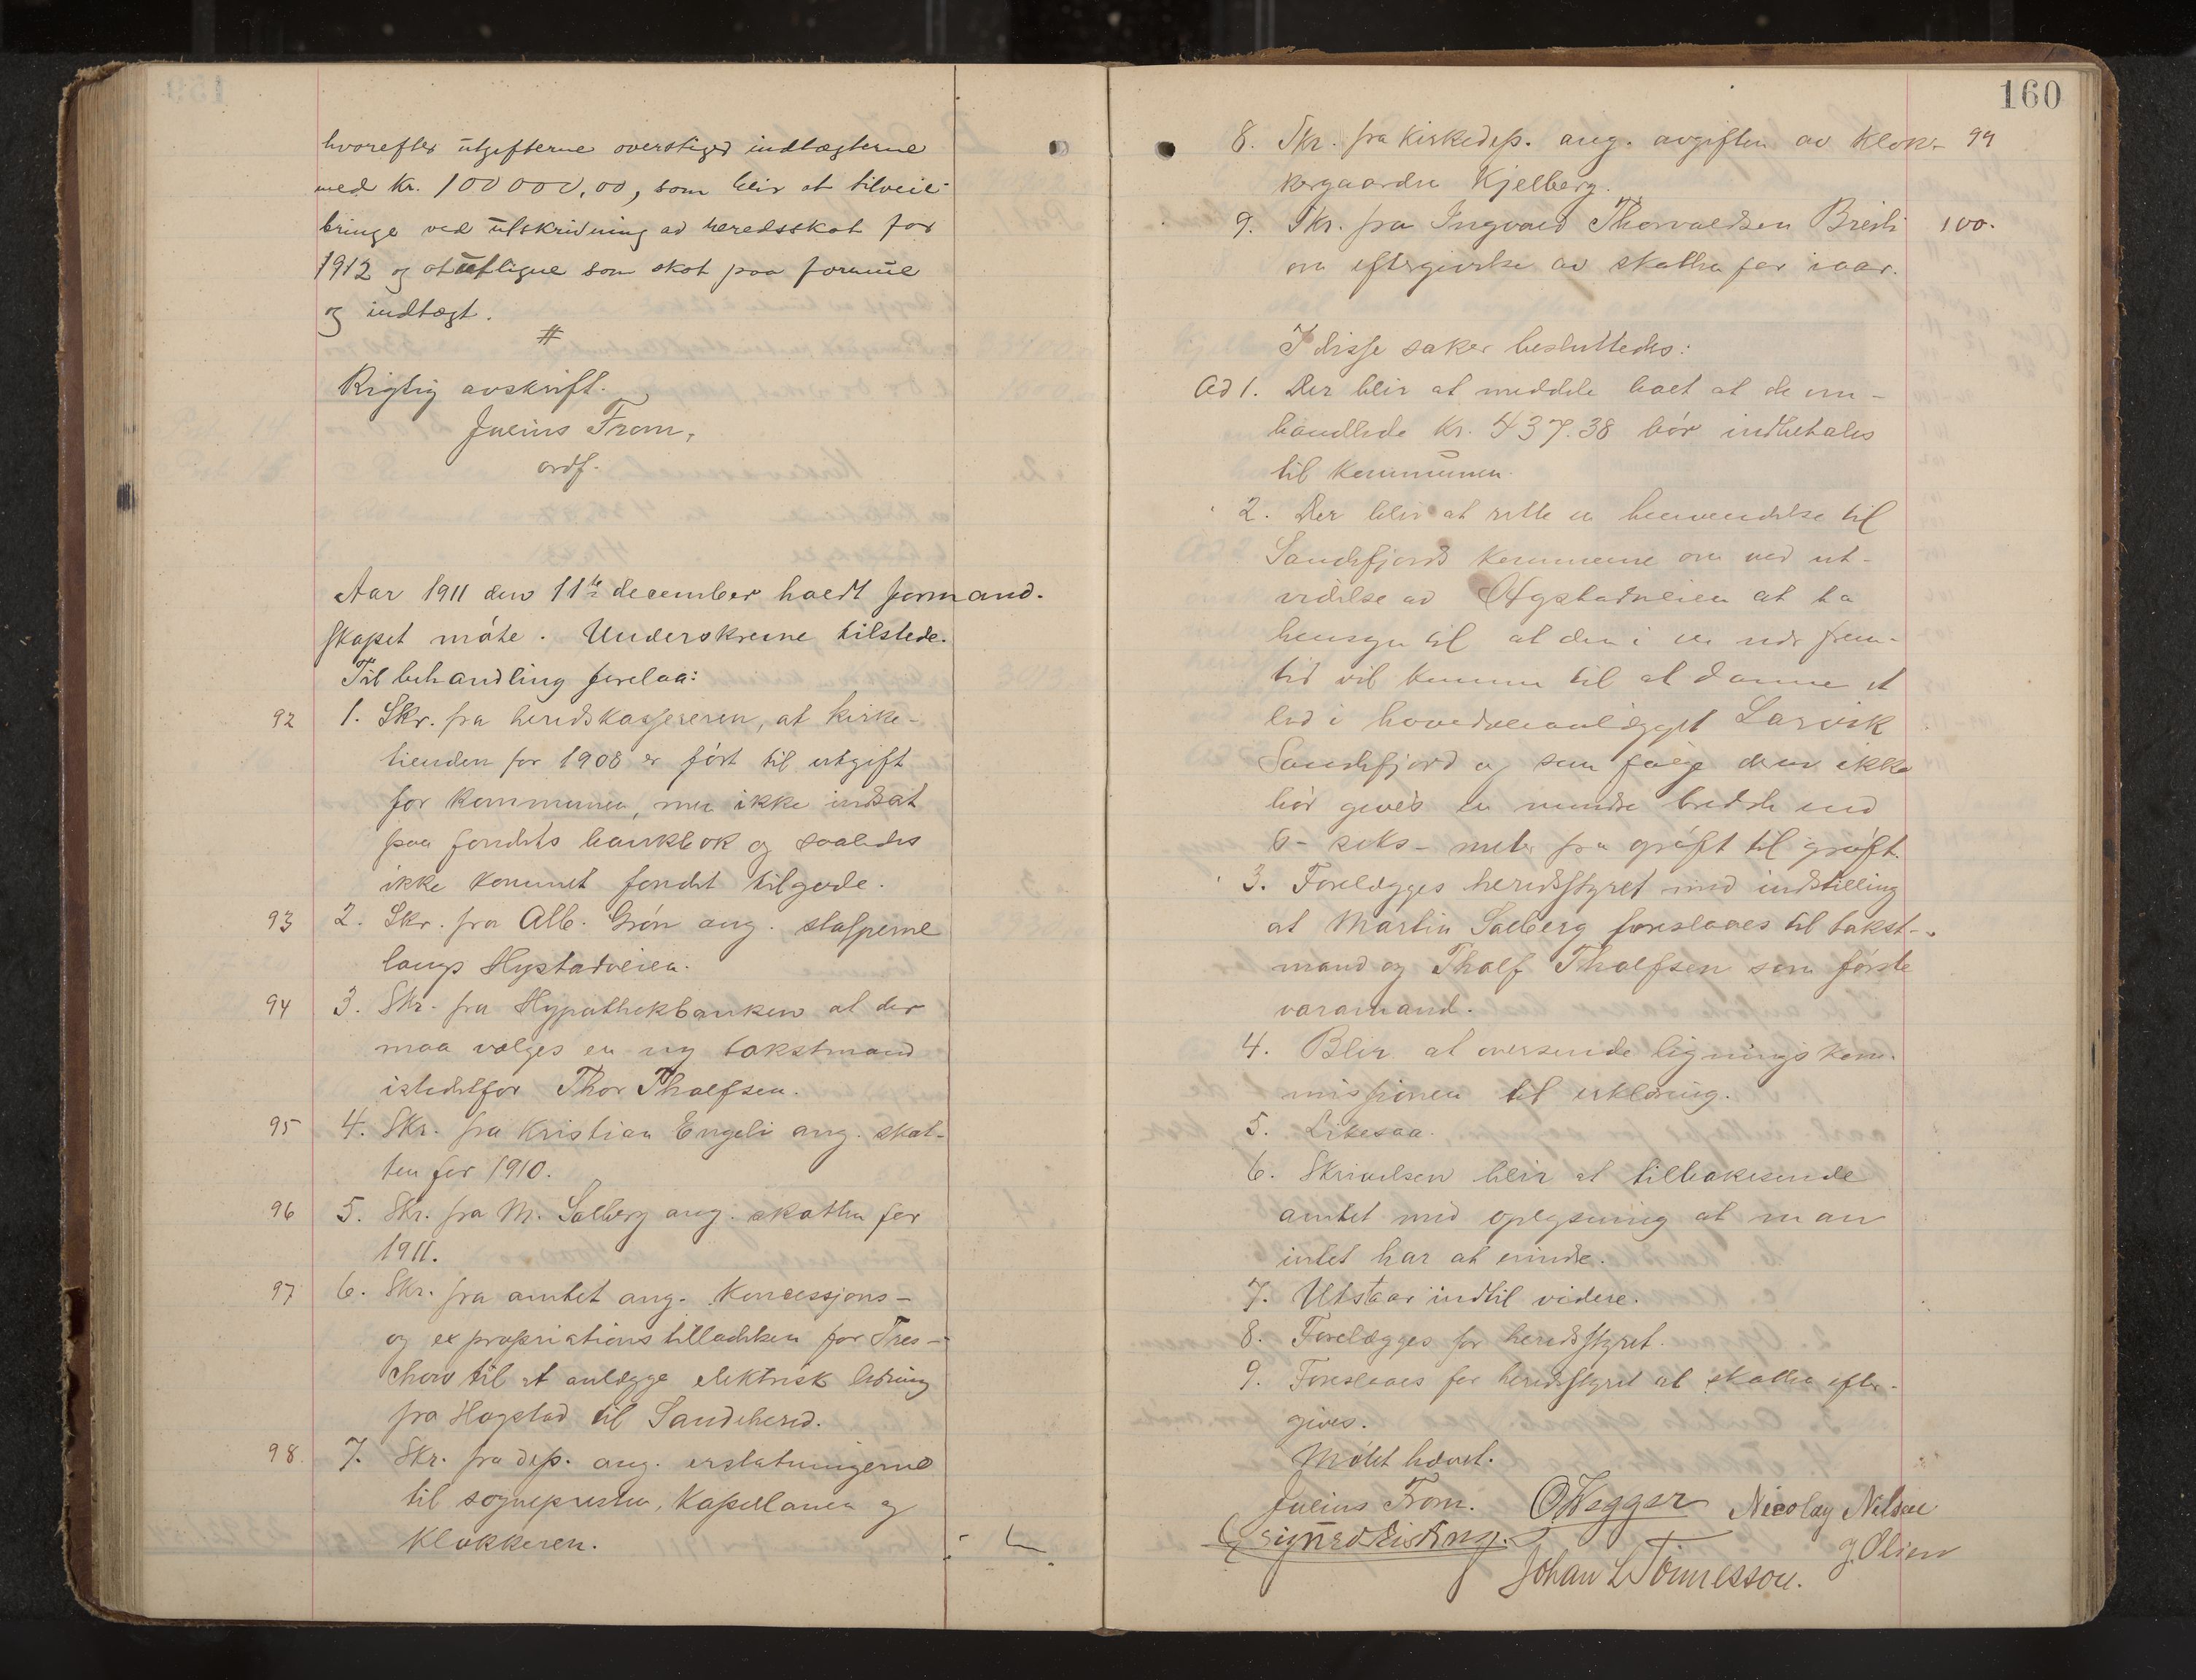 hvorefter utgifterne overstiger indtægterne
med Kr. 100 000,00, som blir at tilveie-
bringe ved utskrivning av heredsskat for
1912 og at utligne som skat paa formue
og indtægt.
#
Rigtig avskrift.
Julius From,
ordf.
Aar 1911 den 11te december holdt formand-
skapet møte. Underskrevne tilstede.
Til behandling forelaa:
92 1. Skr. fra heredskassereren, at kirke-
tienden for 1908 er ført til utgift
for kommunen, men ikke indsat
paa fondets bankbok og saaledes
ikke kommet fondet tilgode.
93 2. Skr. fra Alb. Grøn ang. stolperne
langs Hystadveien.
94 3. Skr. fra Hypothekbanken at der
maa vælges en ny takstmand
istedetfor Thor Tholfsen.
95 4. Skr. fra Kristian Engeli ang. skat-
ten for 1910.
96 5. Skr. fra M. Solberg ang. skatten for
1911.
97 6. Skr. fra amtet ang. Koncessjons-
og expropriations tilladelsen for Tres-
chow til at anlægge elektrisk ledning
fra Hogstad til Sandeherred.
98. 7. Skr. fra dep. ang. erstatningerne
til sognepresten, Kapellanen og
Klokkeren.
160
8. Skr. fra Kirkedep. ang. avgiften av Klok- 99
kergaarden Kjelberg.
9. Skr. fra Ingvald Thorvaldsen Breili 100.
om eftergivelse av skatten for iaar.
I disse saker besluttedes:
Ad 1. Der blir at meddele boet at de om-
handlede Kr. 437.38 bør indbetales
til Kommunen.
2. Der blir at rette en henvendelse til
Sandefjords Kommune om ved ut-
videlse av Hystadveien at ta
hensyn til at den i en nær frem-
tid vil komme til at danne et
led i hovedveianlægget Larvik
Sandefjord og som følge derav ikke
bør gives en mindre bredde end
6 - seks - meter fra grøft til grøft.
3. Forelægges heredsstyret med indstilling
at Martin Solberg foreslaaes til takst-
mand og Tholf Tholfsen som første
varamand.
4. Blir at oversende ligningskom-
missionen til erklæring.
5. Likesaa.
6. Skrivelsen blir at tilbakesende
amtet med oplysning at man
intet har at erindre.
7. Utstaar indtil videre.
8. Forelægges for heredsstyret.
9. Foreslaaes for heredsstyret at skatten efter-
gives.
Møtet hævet.
Julius From. O Wegger Nicolay Nilsen
Johan L Tønnesson.
J. Olsen